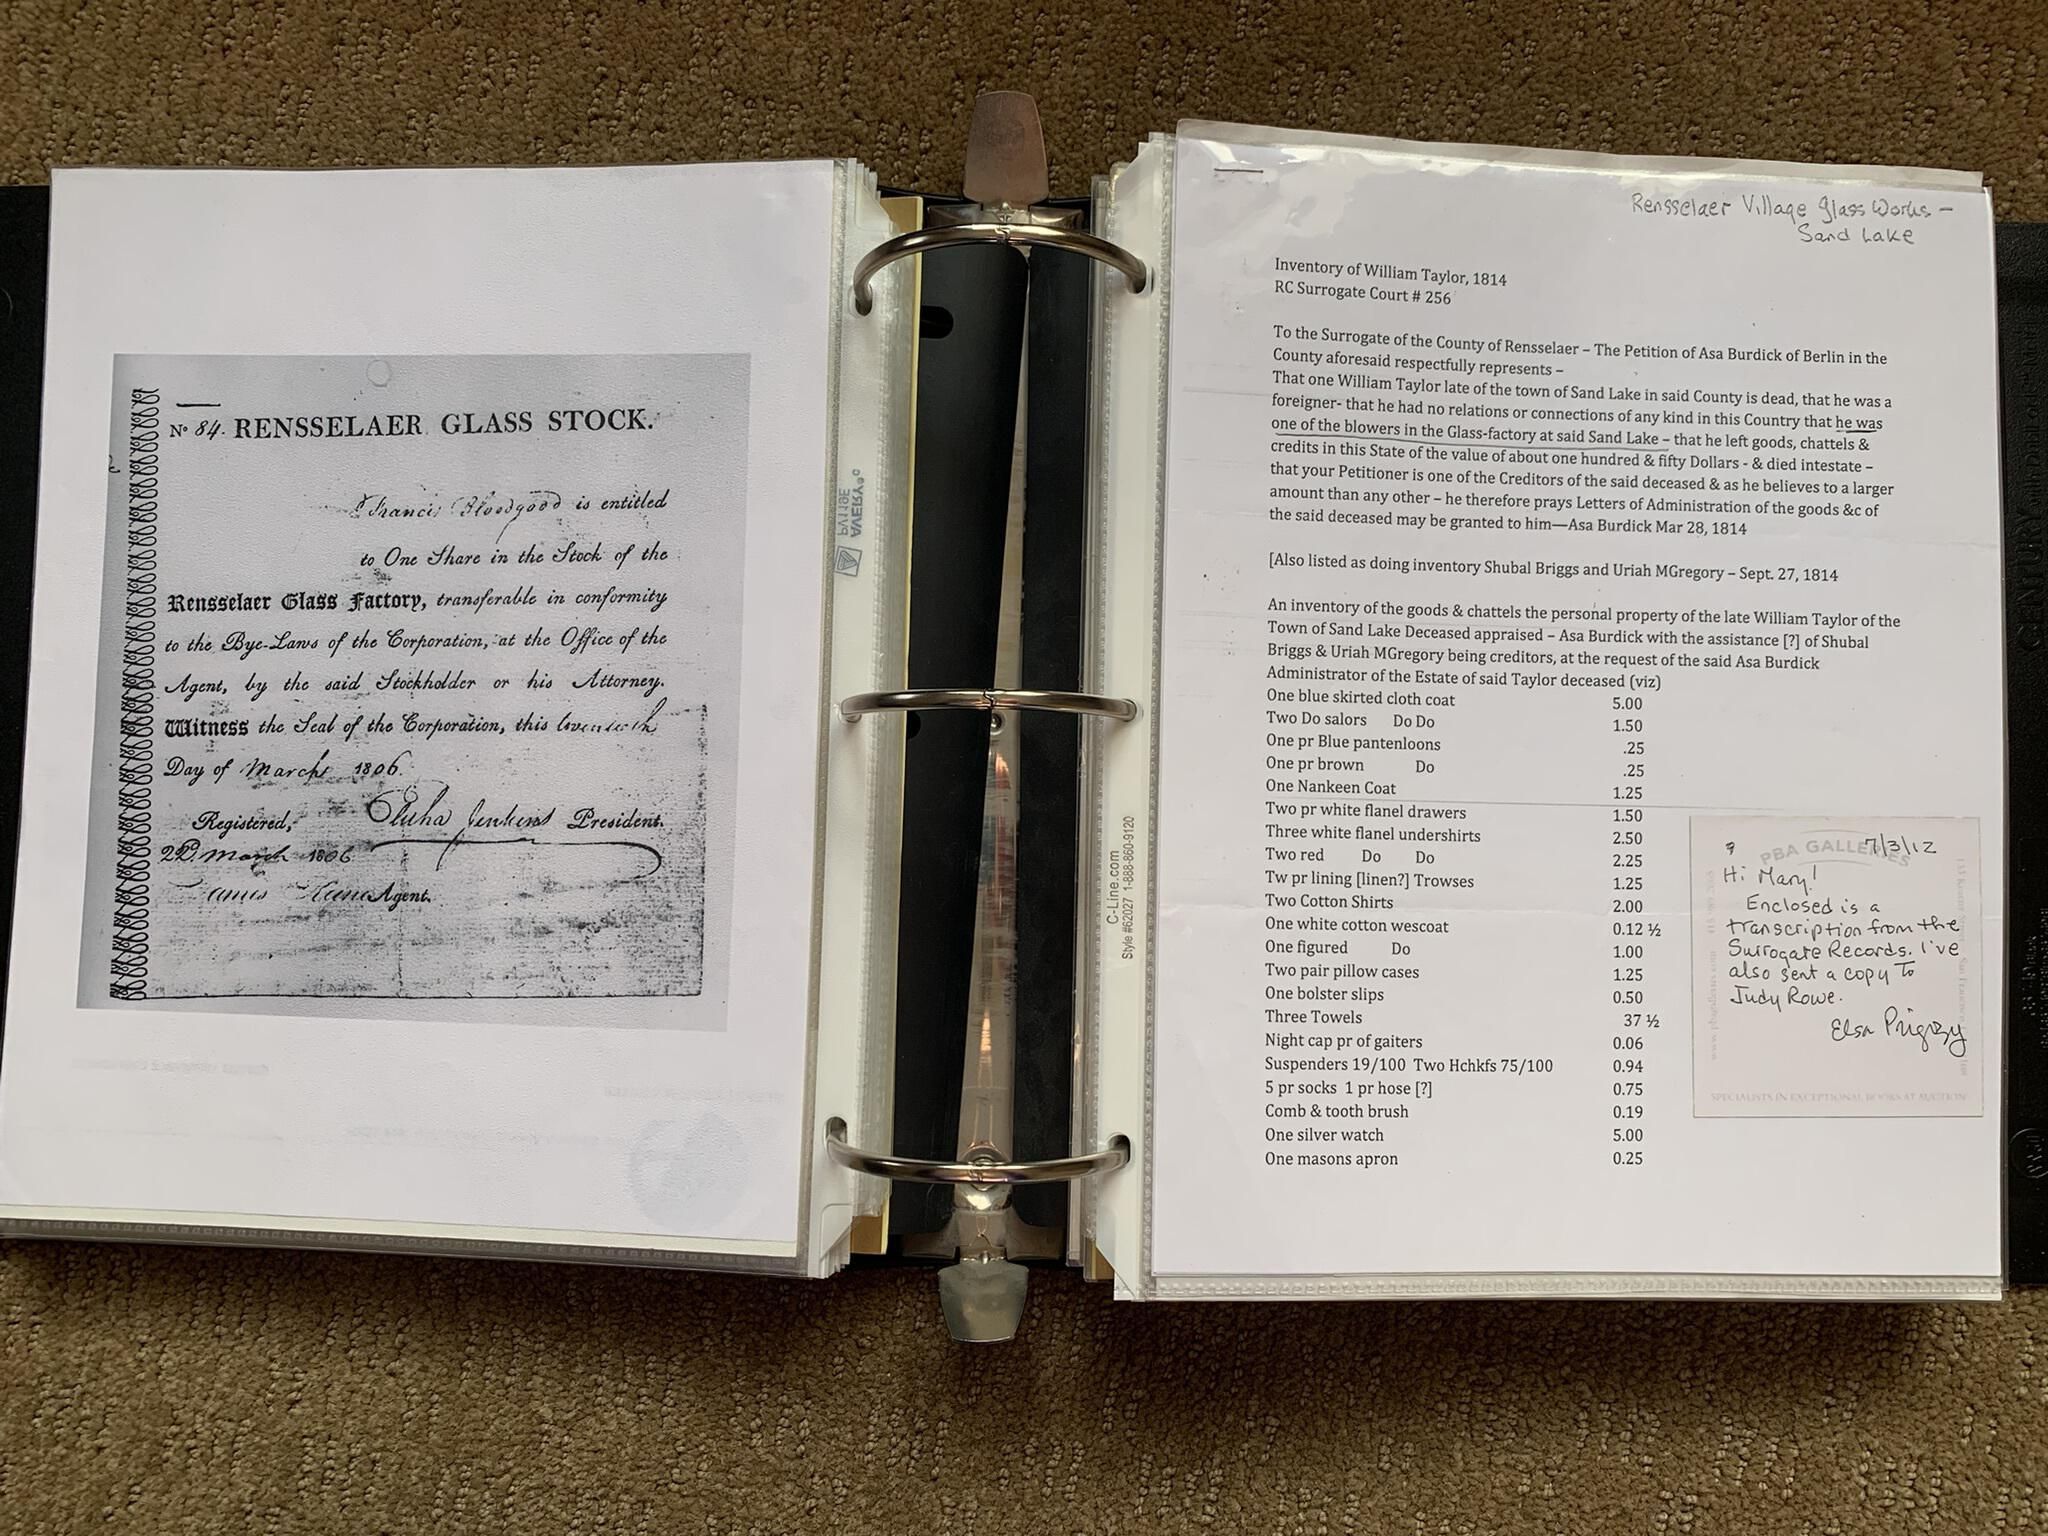 Nº 84. RENSSELAER GLASS STOCK.
Francis Bloodgood is entitled
to One Share in the Stock of the
Rensselaer Glass Factory, transferable in conformity
to the Bye-Laws of the Corporation, at the Office of the
Agent, by the said Stockholder or his Attorney.
Witness the Seal of the Corporation, this
Day of March 1806.
Registered, Elisha Jenkins President.
22d. March 1806
Agent.
AVERY®
PV119E
C-Line.com 1-888-860-9120
Style #62027
Rensselaer Village Glass Works –
Sand Lake
Inventory of William Taylor, 1814
RC Surrogate Court # 256
To the Surrogate of the County of Rensselaer – The Petition of Asa Burdick of Berlin in the
County aforesaid respectfully represents –
That one William Taylor late of the town of Sand Lake in said County is dead, that he was a
foreigner- that he had no relations or connections of any kind in this Country that he was
one of the blowers in the Glass-factory at said Sand Lake – that he left goods, chattels &
credits in this State of the value of about one hundred & fifty Dollars - & died intestate –
that your Petitioner is one of the Creditors of the said deceased & as he believes to a larger
amount than any other – he therefore prays Letters of Administration of the goods &c of
the said deceased may be granted to him—Asa Burdick Mar 28, 1814
[Also listed as doing inventory Shubal Briggs and Uriah MGregory – Sept. 27, 1814
An inventory of the goods & chattels the personal property of the late William Taylor of the
Town of Sand Lake Deceased appraised – Asa Burdick with the assistance [?] of Shubal
Briggs & Uriah MGregory being creditors, at the request of the said Asa Burdick
Administrator of the Estate of said Taylor deceased (viz)
One blue skirted cloth coat 5.00
Two Do salors Do Do 1.50
One pr Blue pantenloons .25
One pr brown Do .25
One Nankeen Coat 1.25
Two pr white flanel drawers 1.50
Three white flanel undershirts 2.50
Two red Do Do 2.25
Tw pr lining [linen?] Trowses 1.25
Two Cotton Shirts 2.00
One white cotton wescoat 0.12 ½
One figured Do 1.00
Two pair pillow cases 1.25
One bolster slips 0.50
Three Towels 37 ½
Night cap pr of gaiters 0.06
Suspenders 19/100 Two Hchkfs 75/100 0.94
5 pr socks 1 pr hose [?] 0.75
Comb & tooth brush 0.19
One silver watch 5.00
One masons apron 0.25
PBA GALLERIES
7/3/12
Hi Mary!
Enclosed is a
transcription from the
Surrogate Records. I've
also sent a copy to
Judy Rowe.
Elsa Prigozy
SPECIALISTS IN EXCEPTIONAL BOOKS AT AUCTION
CENTURY